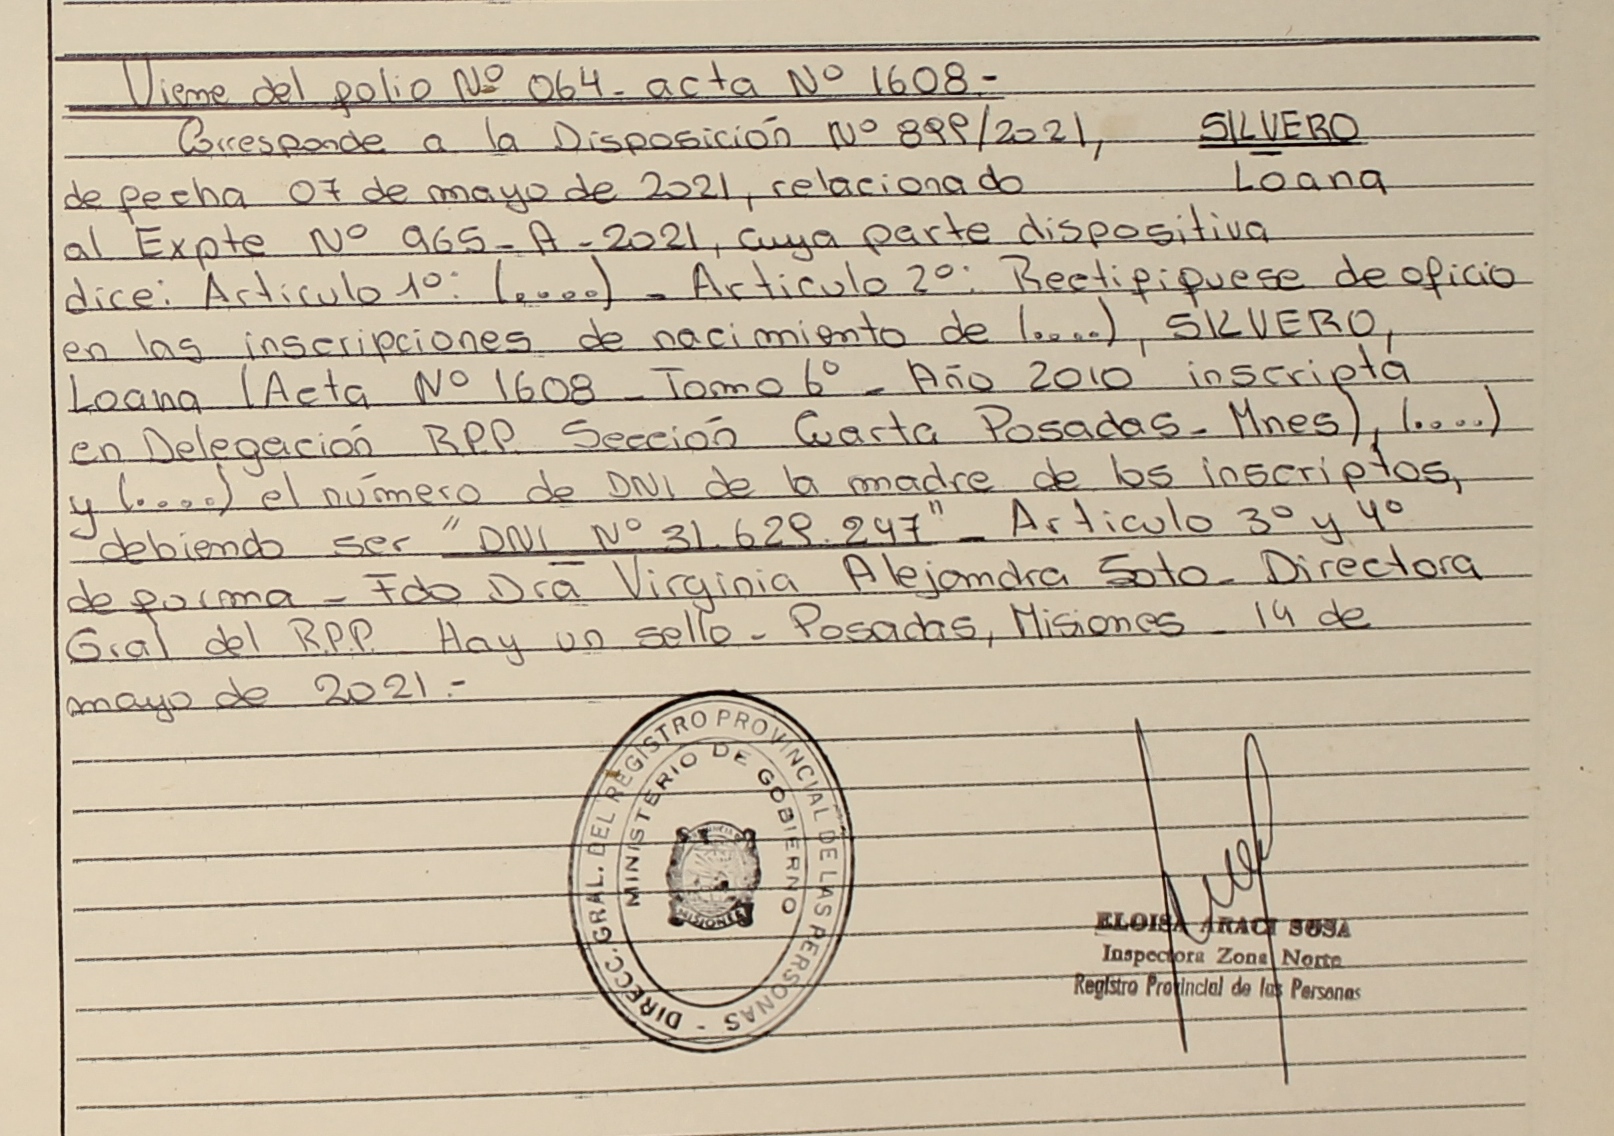 Viene del folio Nº 064 - acta Nº 1608.-
Corresponde a la Disposición Nº 899/2021, SILVERO
de fecha 07 de mayo de 2021, relacionado Loana
al Expte Nº 965-A-2021, cuya parte dispositiva
dice: Articulo 1º: (....) - Articulo 2º: Rectifiquese de oficio
en las inscripciones de nacimiento de (....), SILVERO,
Loana (Acta Nº 1608 - Tomo 6º - Año 2010 inscripta
en Delegación R.P.P. Sección Cuarta Posadas - Mnes), (....)
y (....) el número de DNI de la madre de los inscriptos,
debiendo ser "DNI Nº 31.629.247" - Articulo 3º y 4º
de forma - Fdo Dra Virginia Alejandra Soto - Directora
Gral del R.P.P. Hay un sello - Posadas, Misiones - 14 de
mayo de 2021.-
DIRECC. GRAL. DEL REGISTRO PROVINCIAL DE LAS PERSONAS -
MINISTERIO DE GOBIERNO
MISIONES
ELOISA ARACI SOSA
Inspectora Zona Norte
Registro Provincial de las Personas